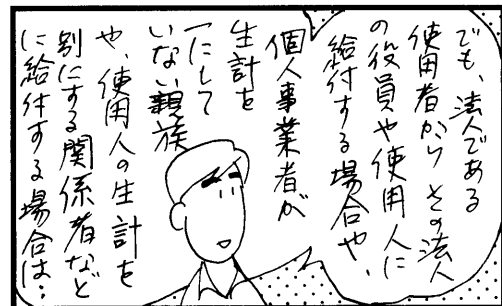 でも、法人である
使用者からその法人
の役員や使用人に
給付する場合や、
個人事業者が
生計を
一にして
いない親族
や、使用人の生計を
別にする関係者など
に給付する場合は・